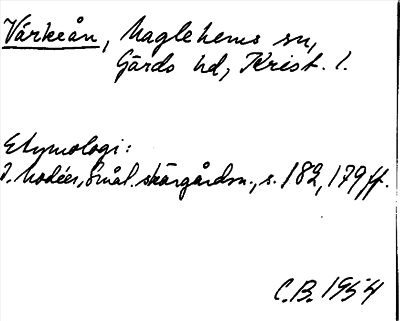 Värkeån, Maglehems sn,
Gärds hd, Krist. l.
Etymologi:
I. Modéer, Smål. skärgårdsn., s. 182, 179 ff.
C.B. 1954